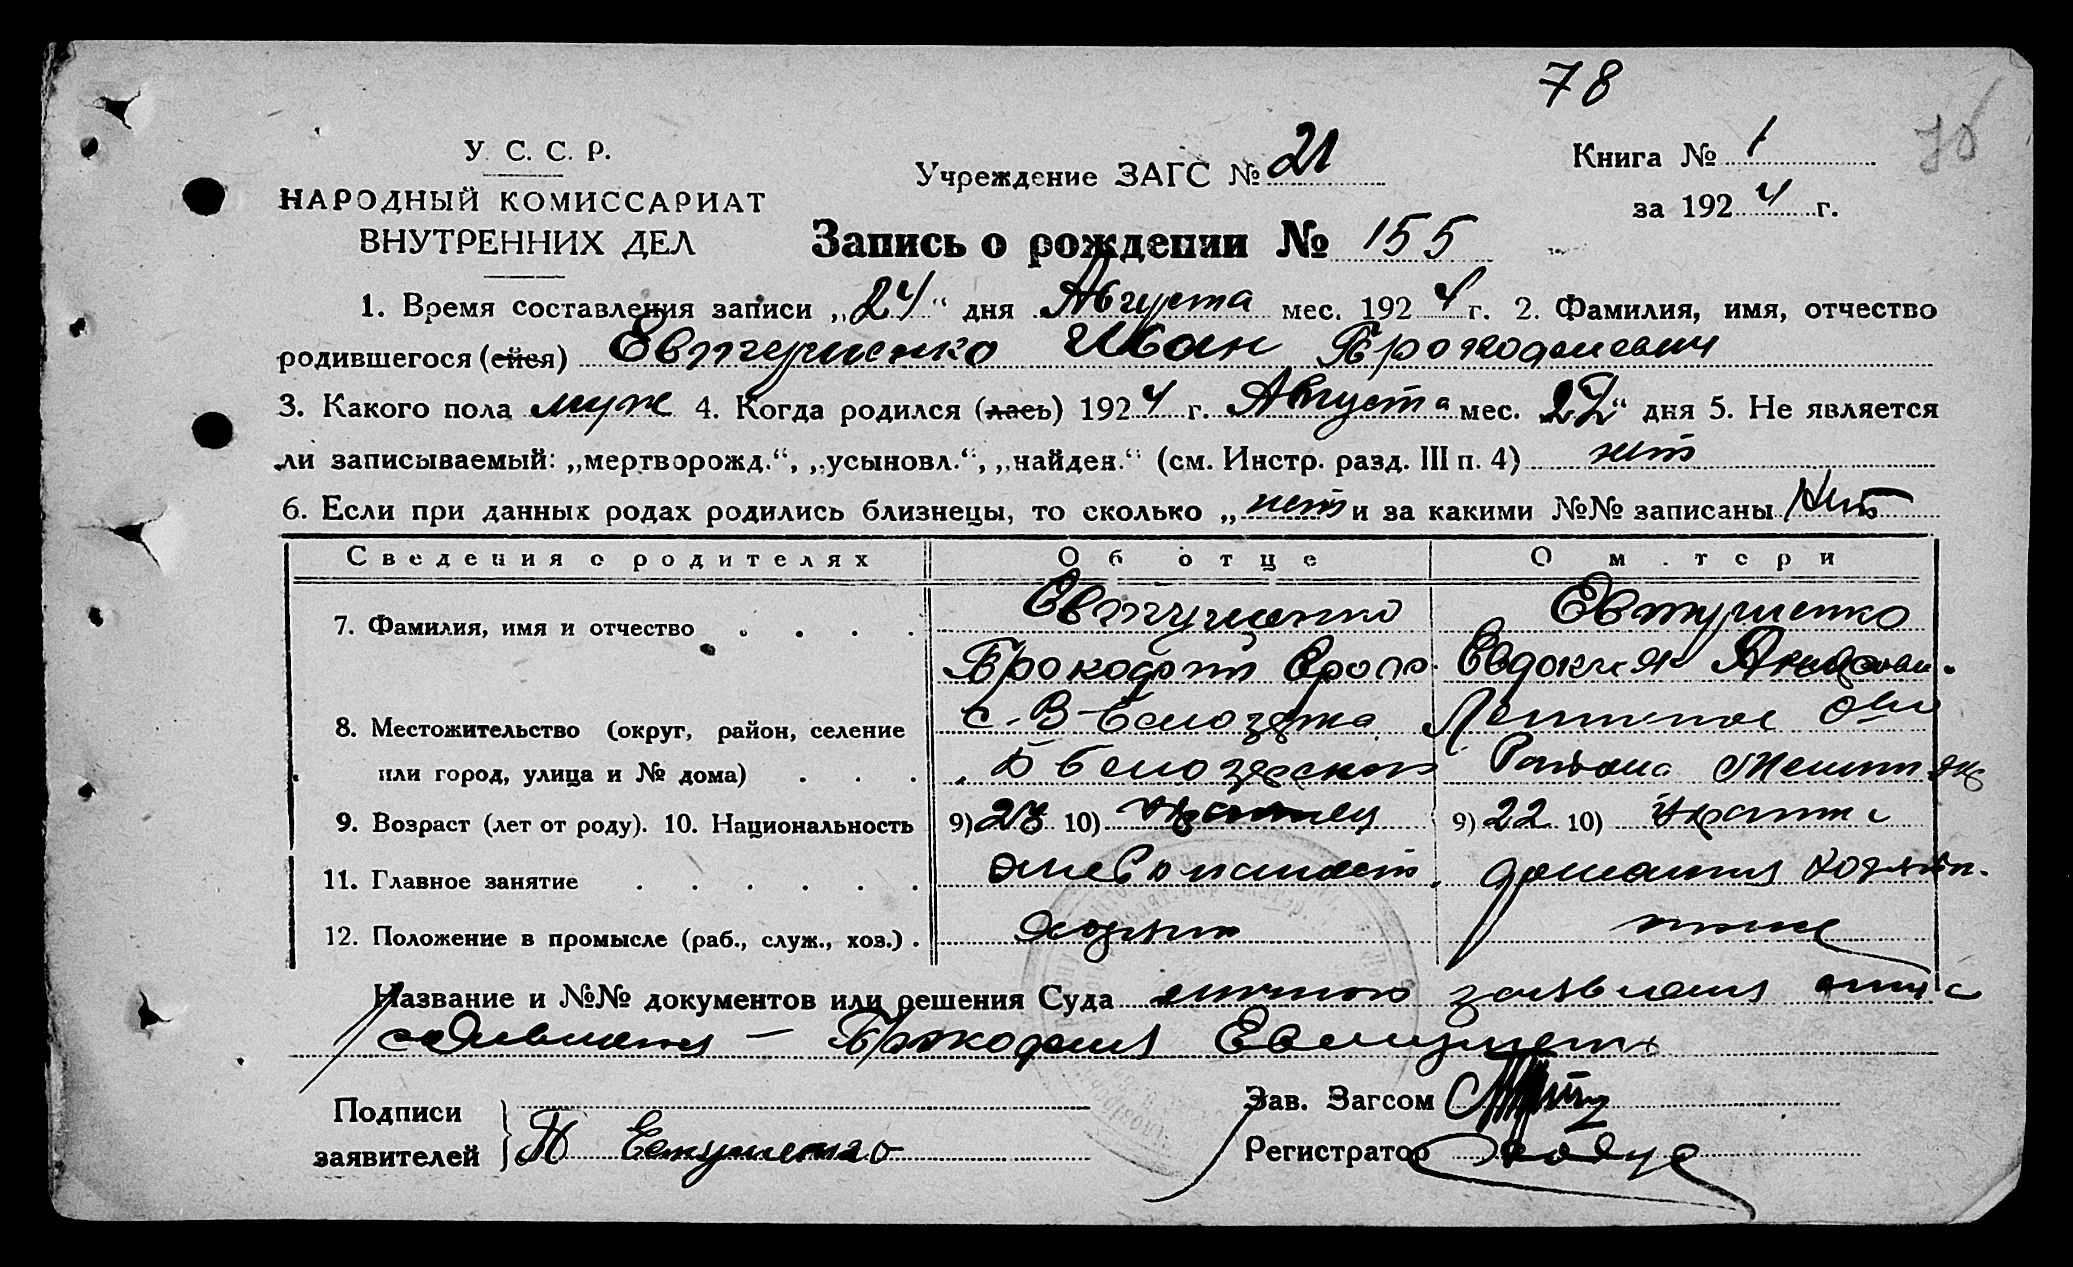 78
У. С. С. Р.
НАРОДНЫЙ КОМИССАРИАТ
ВНУТРЕННИХ ДЕЛ
Учреждение ЗАГС № 21
Книга № 1
за 1924 г.
Запись о рождении № 155
1. Время составления записи „24“ дня Августа мес. 1924 г. 2. Фамилия, имя, отчество
родившегося (ейся) Евтушенко Иван Прокофиевич
3. Какого пола муж 4. Когда родился (лась) 1924 г. Августа мес. дня 5. Не является
ли записываемый: „мертворожд.“, „усыновл.“, „найден.“ (см. Инстр. разд. III п. 4) нет
6. Если при данных родах родились близнецы, то сколько „нет и за какими №№ записаны нет
Сведения о родителях Об отце О м тери
7. Фамилия, имя и отчество Евтушенко Евтушенко
Прокофий Евдокия
8. Местожительство (округ, район, селение с. В-Белозерка
или город, улица и № дома) Б Белозерского Района
9. Возраст (лет от роду). 10. Национальность 9) 10) украинец 9) 22 10)
11. Главное занятие домашняя хозяйн.
12. Положение в промысле (раб., служ., хоз.) хозяин
Название и №№ документов или решения Суда личного заявления отца
Прокофия Евтушенко
Подписи
заявителей П Евтушенко
Зав. Загсом
Регистратор